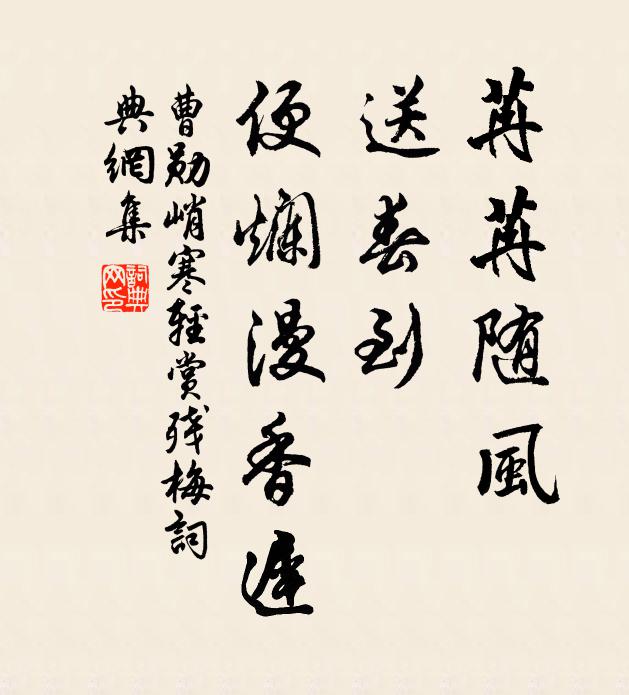 苒苒随風
送春到
便爛漫香遲
曹勛峭寒輕賞残梅詞
典網集
詞典网印